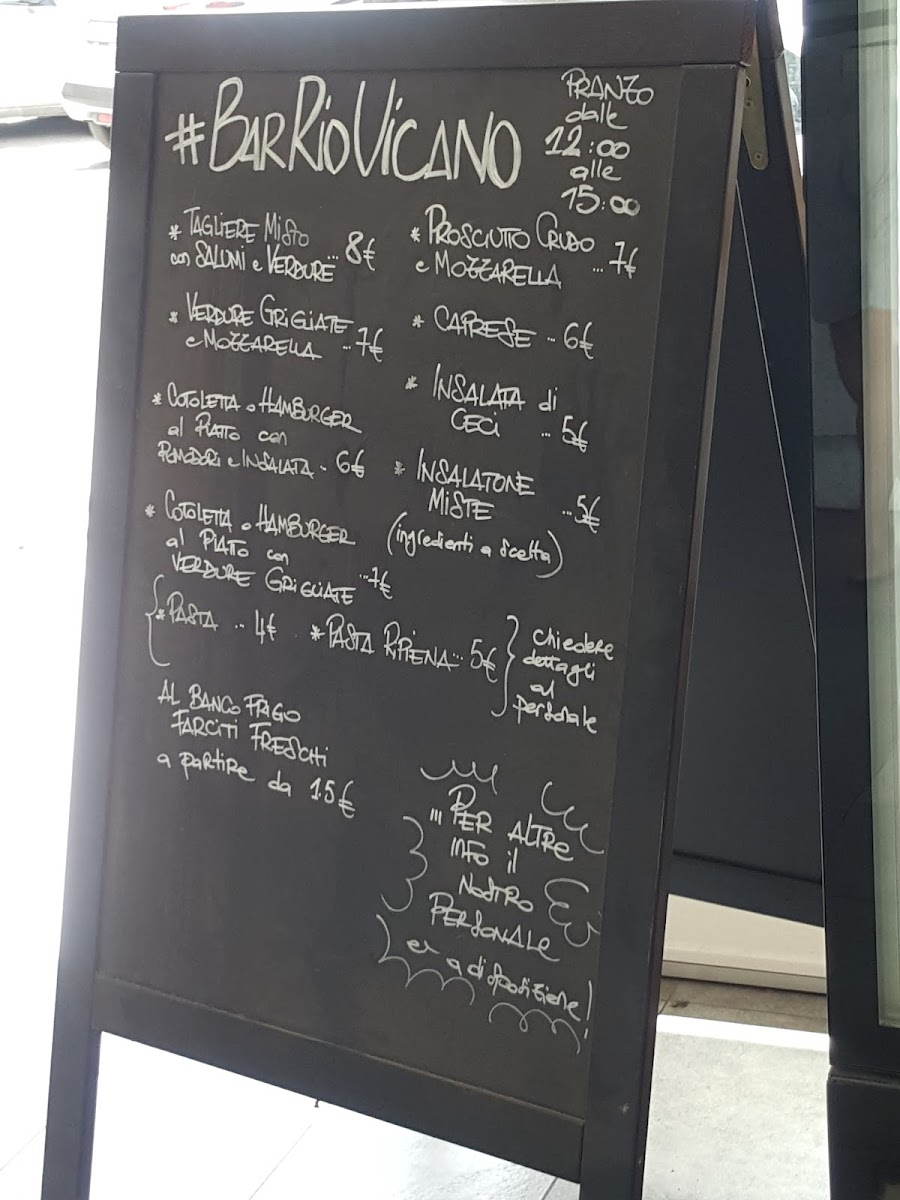 #BARRIOVICANO
PRANZO
dalle
12:00
alle
15:00
* TAGLIERE MISTO
con SALUMI e VERDURE... 8€
* VERDURE GRIGLIATE
e MOZZARELLA ...7€
* COTOLETTA o HAMBURGER
al PIATTO con
POMODORI e INSALATA .. 6€
* COTOLETTA o HAMBURGER
al PIATTO con
VERDURE GRIGLIATE ...7€
* PROSCIUTTO CRUDO
e MOZZARELLA ... 7€
* CAPRESE ... 6€
* INSALATA di
CECI ... 5€
* INSALATONE
MISTE ...5€
(ingredienti a scelta)
* PASTA ... 4€ * PASTA RIPIENA... 5€
chiedere
dettagli
al
personale
AL BANCO FRIGO
FARCITI FRESCHI
a partire da 1.5€
... PER ALTRE
INFO il
NOSTRO
PERSONALE
e' a disposizione!